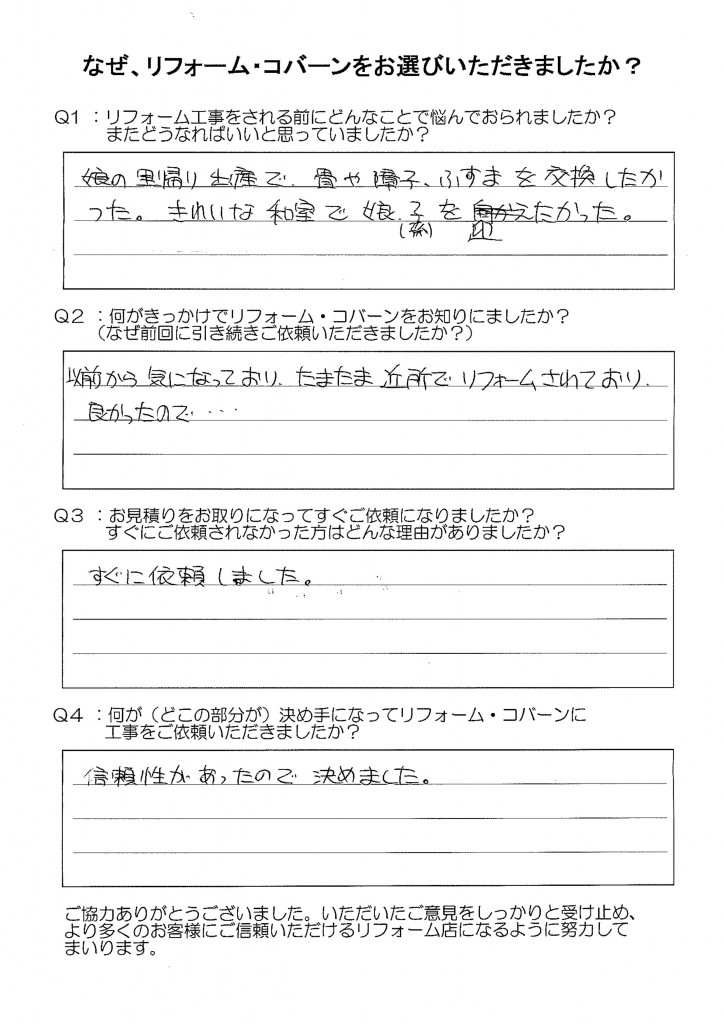 なぜ、リフォーム・コバーンをお選びいただきましたか？
Q1 ：リフォーム工事をされる前にどんなことで悩んでおられましたか？
またどうなればいいと思っていましたか？
娘の里帰り出産で、畳や障子、ふすまを交換したか
った。きれいな和室で娘、子を向かえたかった。
(孫) 迎
Q2 ：何がきっかけでリフォーム・コバーンをお知りにましたか？
（なぜ前回に引き続きご依頼いただきましたか？）
以前から気になっており、たまたま近所でリフォームされており、
良かったので・・・
Q3 ：お見積りをお取りになってすぐご依頼になりましたか？
すぐにご依頼されなかった方はどんな理由がありましたか？
すぐに依頼しました。
Q4 ：何が（どこの部分が）決め手になってリフォーム・コバーンに
工事をご依頼いただきましたか？
信頼性があったので決めました。
ご協力ありがとうございました。いただいたご意見をしっかりと受け止め、
より多くのお客様にご信頼いただけるリフォーム店になるように努力して
まいります。